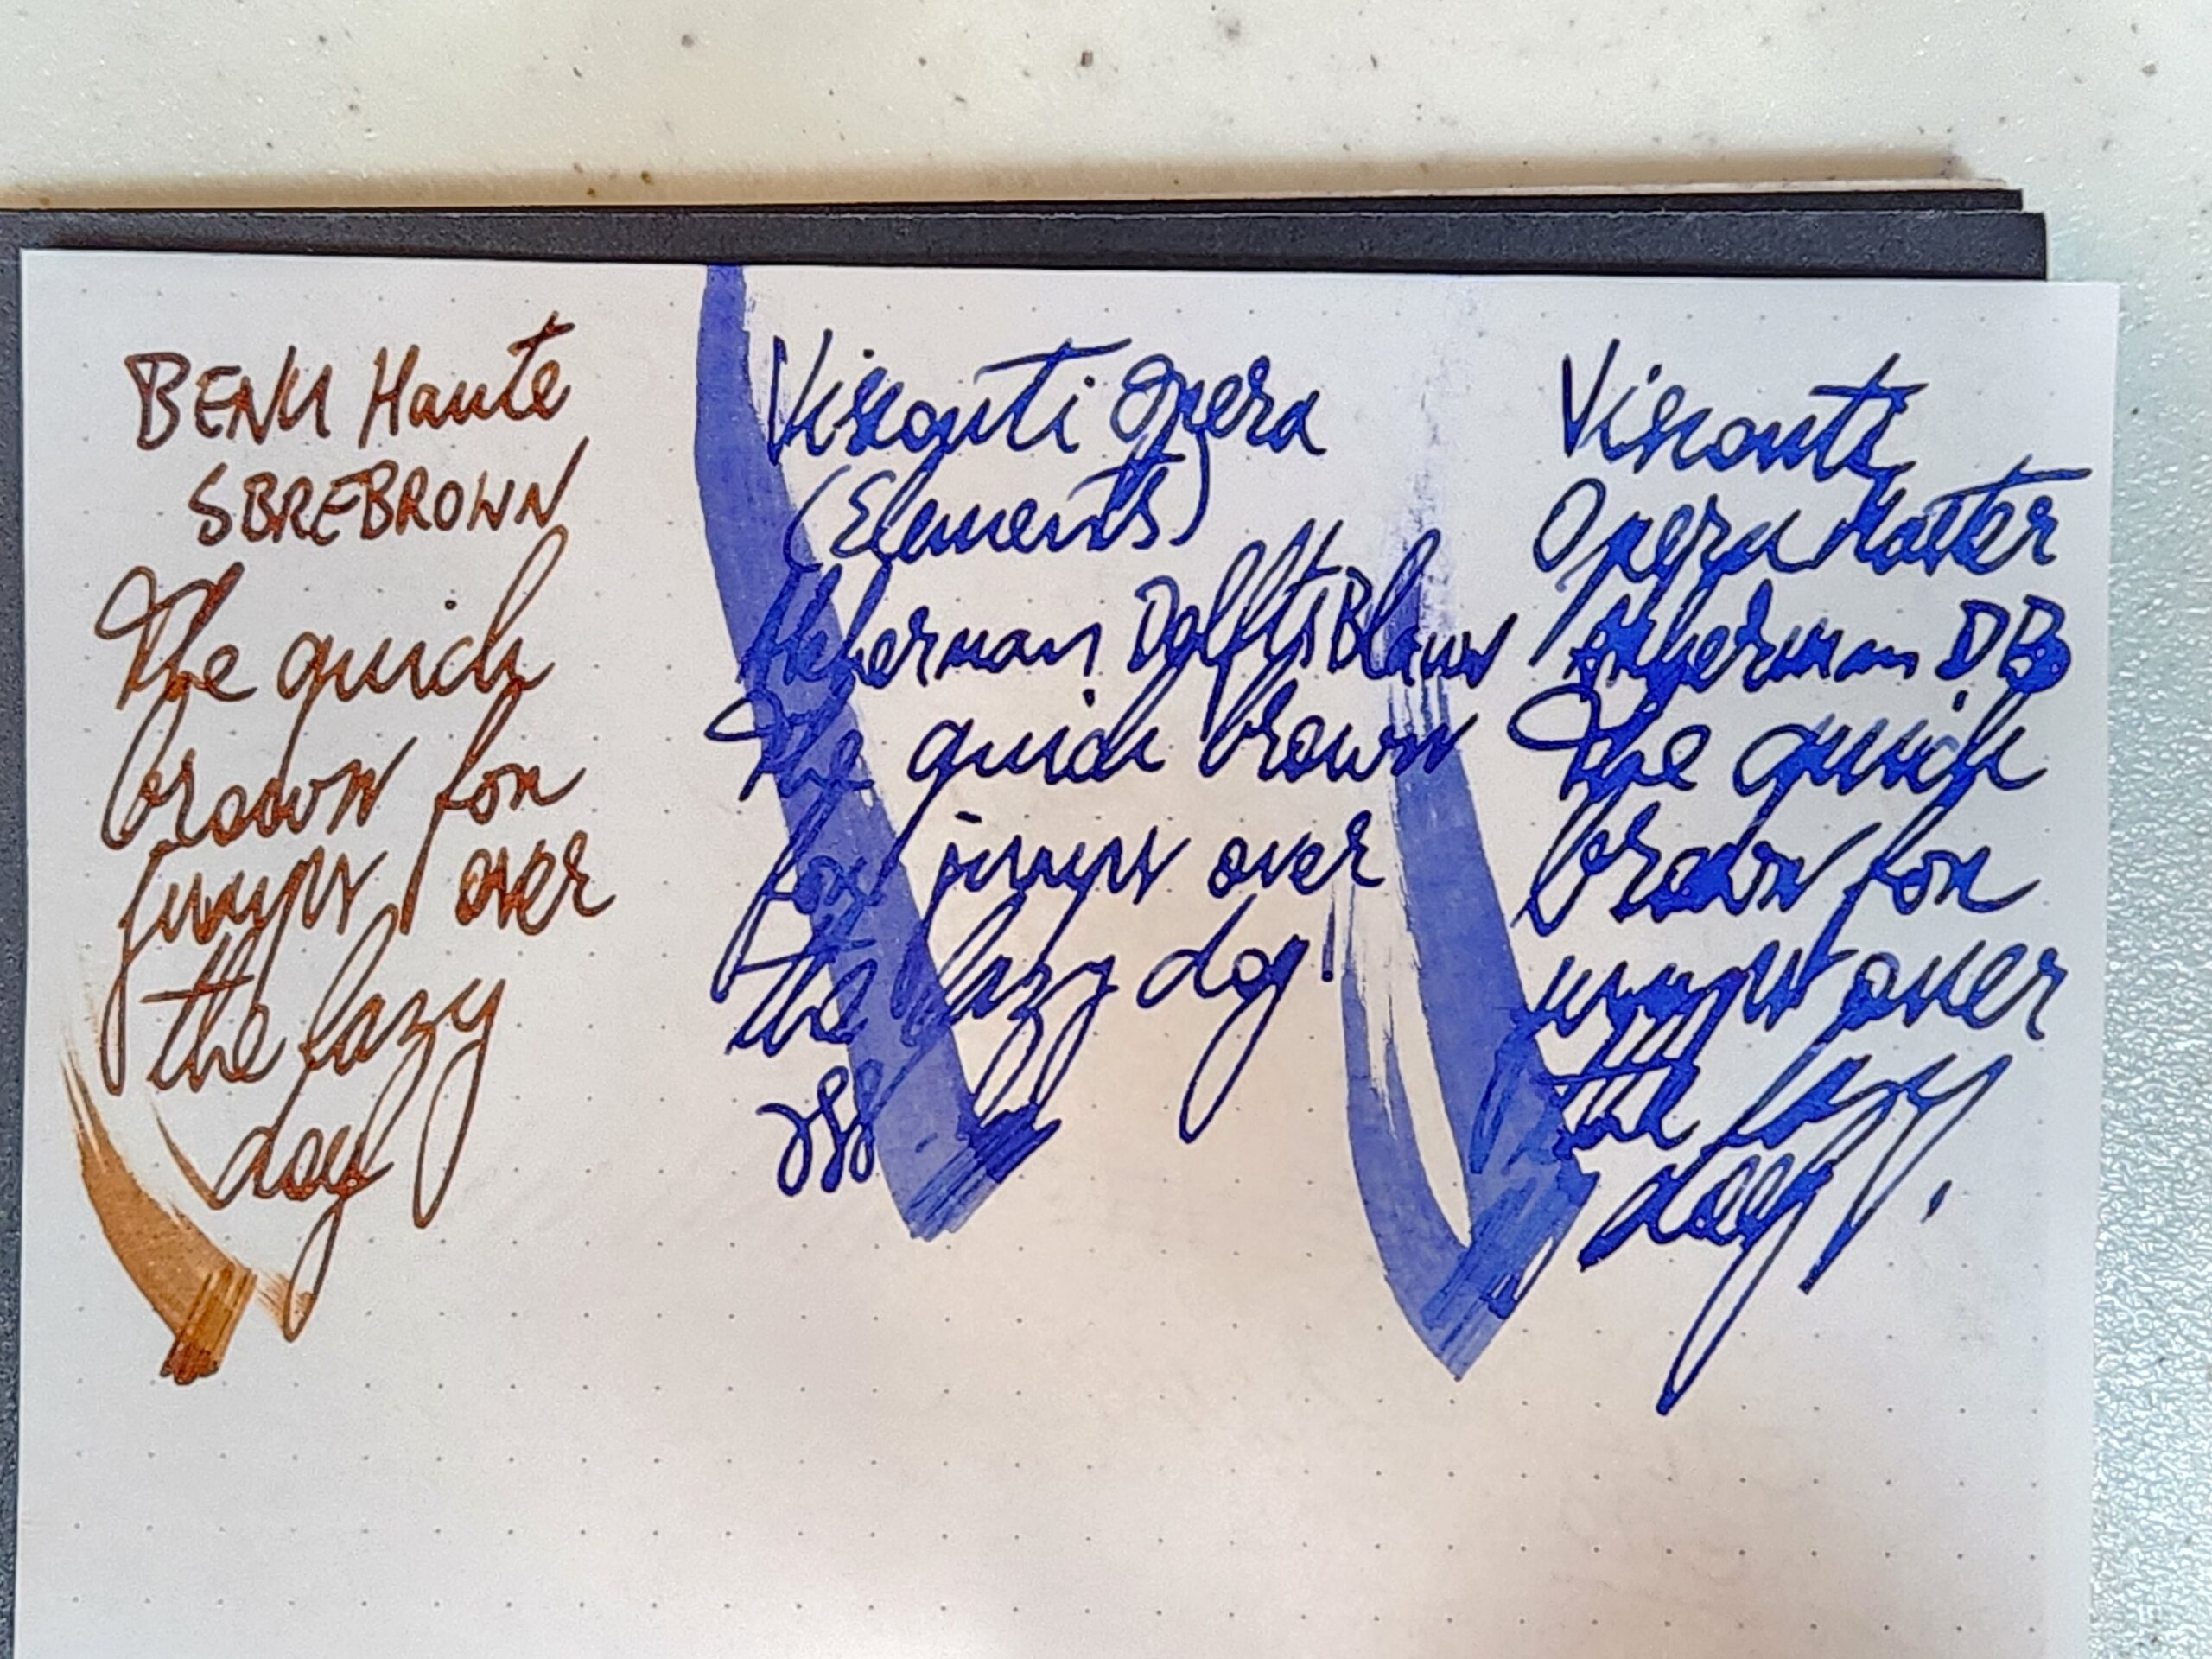 BENU Haute
SBREBROWN
The quick
brown fox
jumps over
the lazy
dog
Visconti Opera
(Elements)
Akkerman Delfts Blauw
The quick brown
fox jumps over
the lazy dog!
Visconti
Opera Master
Akkerman DB
The quick
brown fox
jumps over
the lazy
dog.